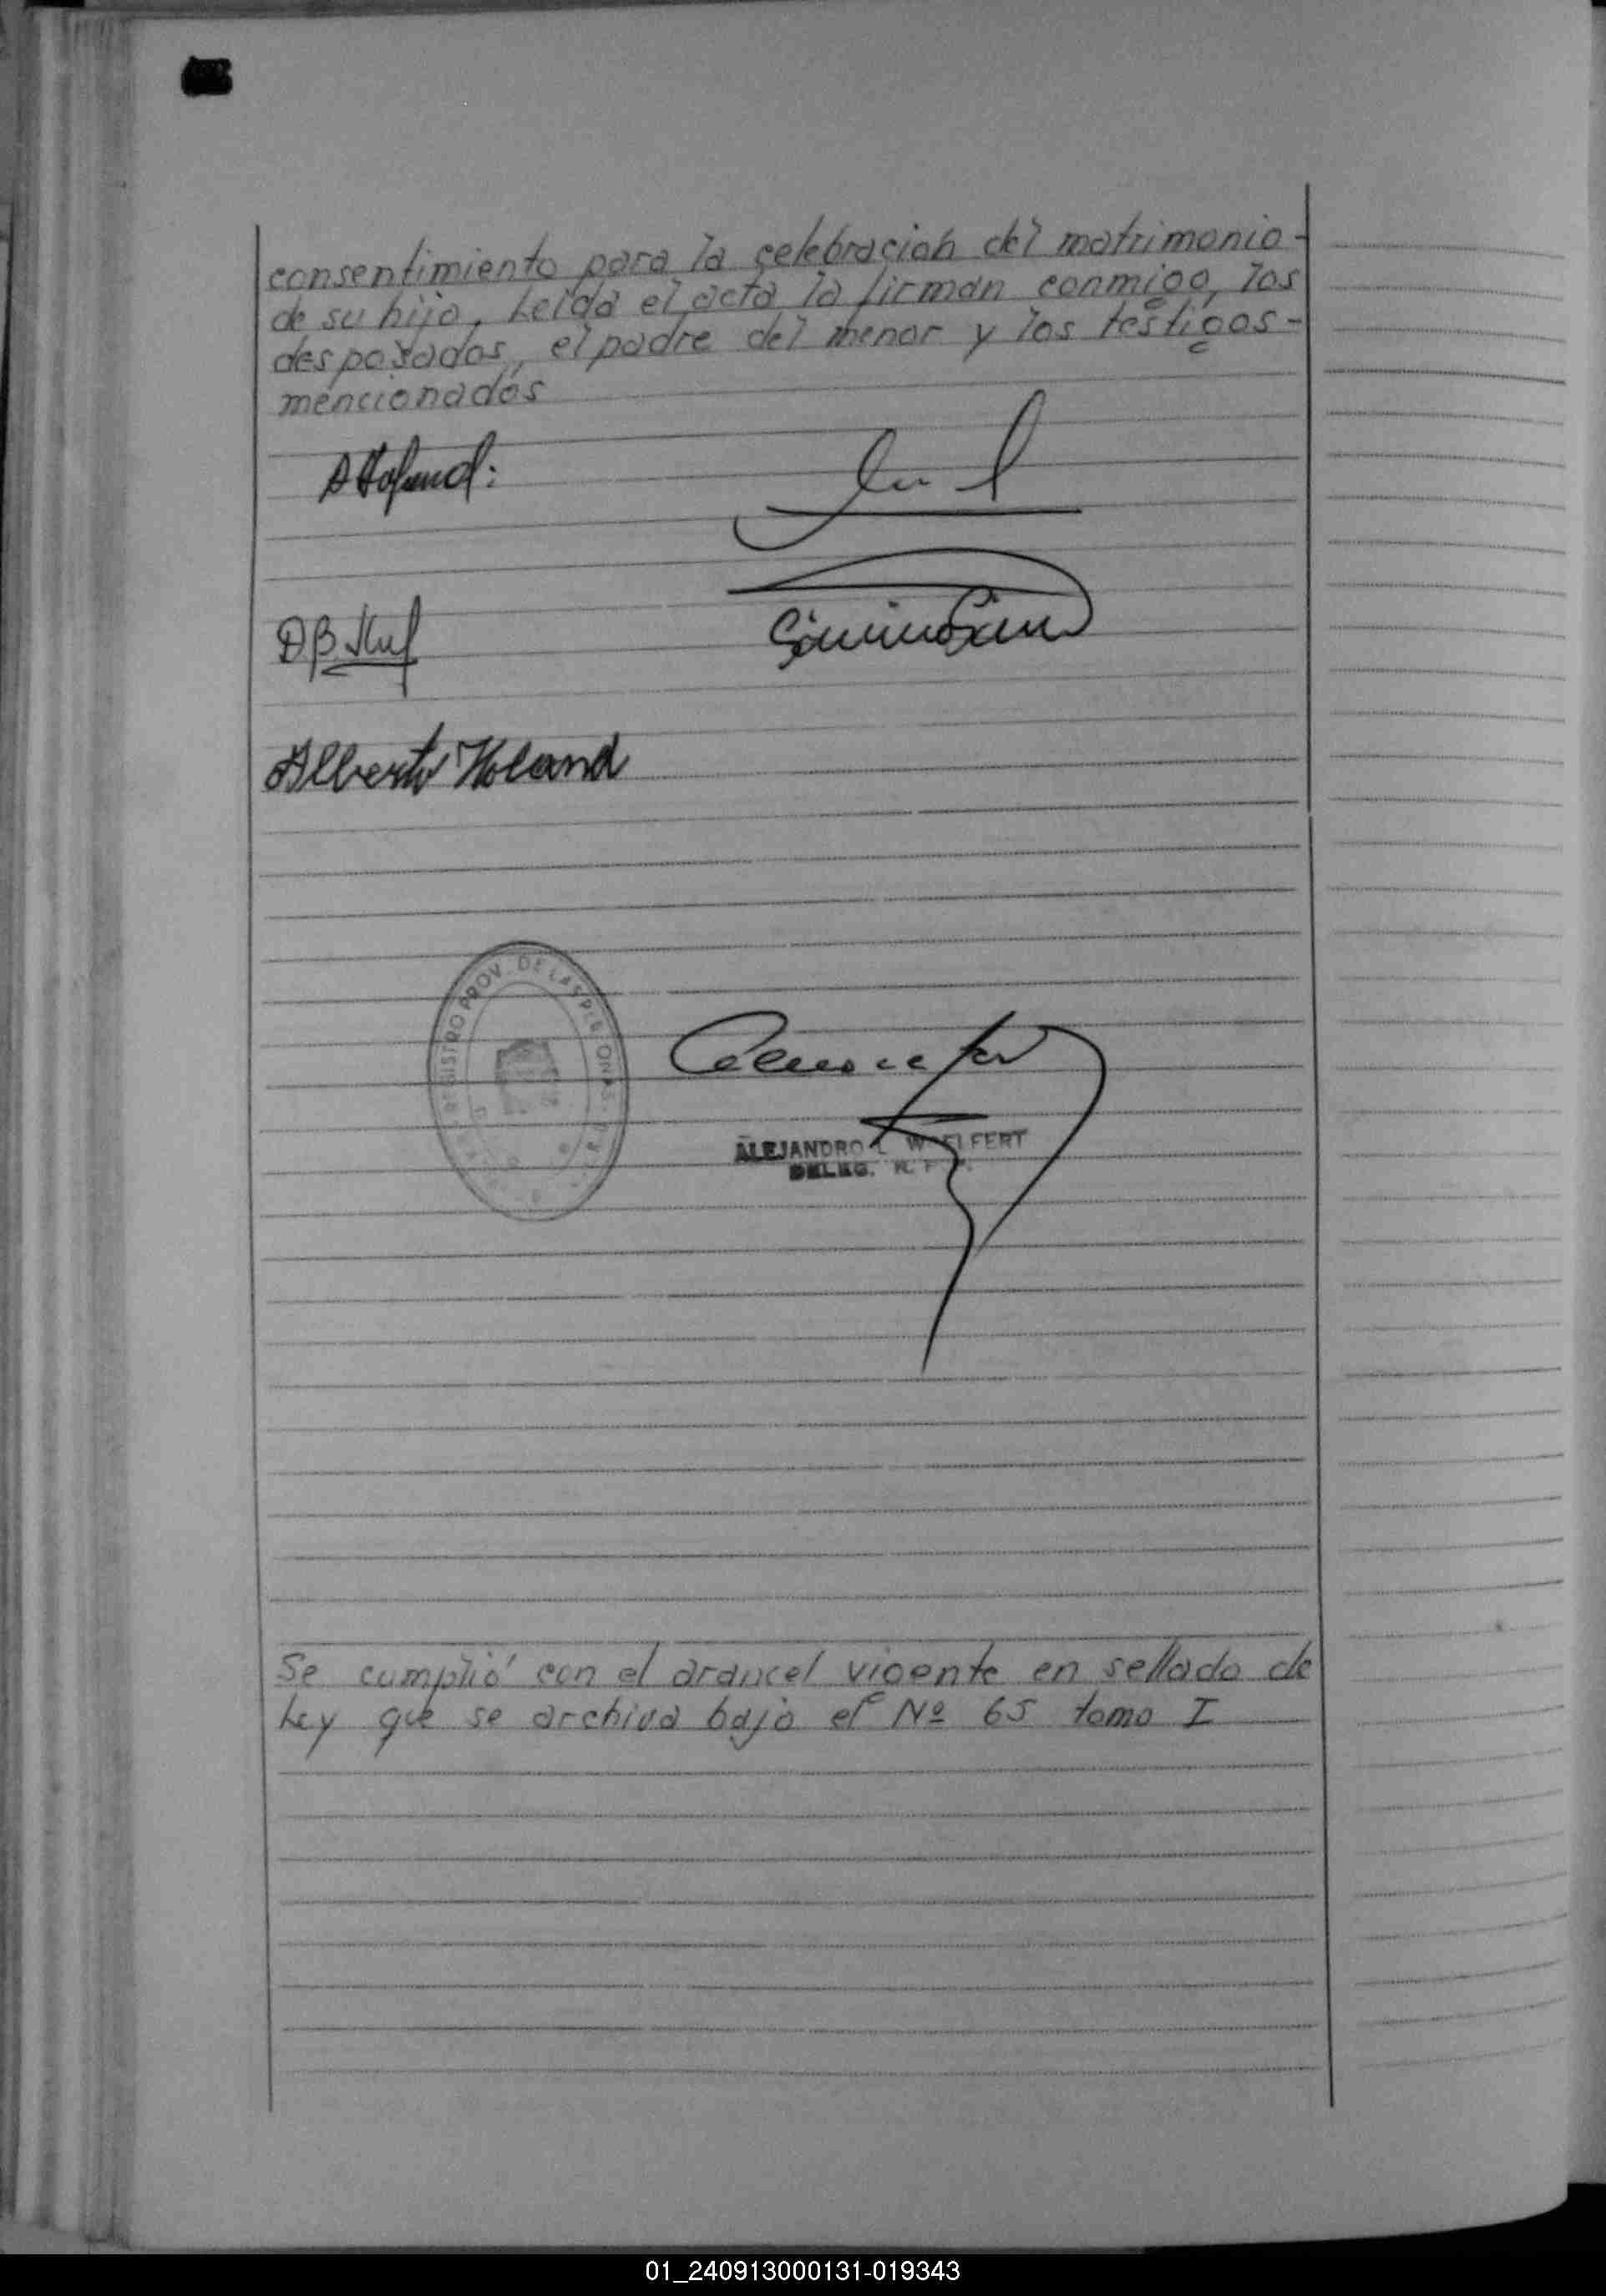 consentimiento para la celebración del matrimonio -
de su hijo, Leída el acta la firman conmigo, los
desposados, el padre del menor y los testigos -
mencionados
Alberto Holand
REGISTRO PROV. DE LAS PERSONAS
ALEJANDRO L WOELFERT
DELEG. R. P.
Se cumplió con el arancel vigente en sellado de
Ley que se archiva bajo el Nº 65 tomo I
01_240913000131-019343